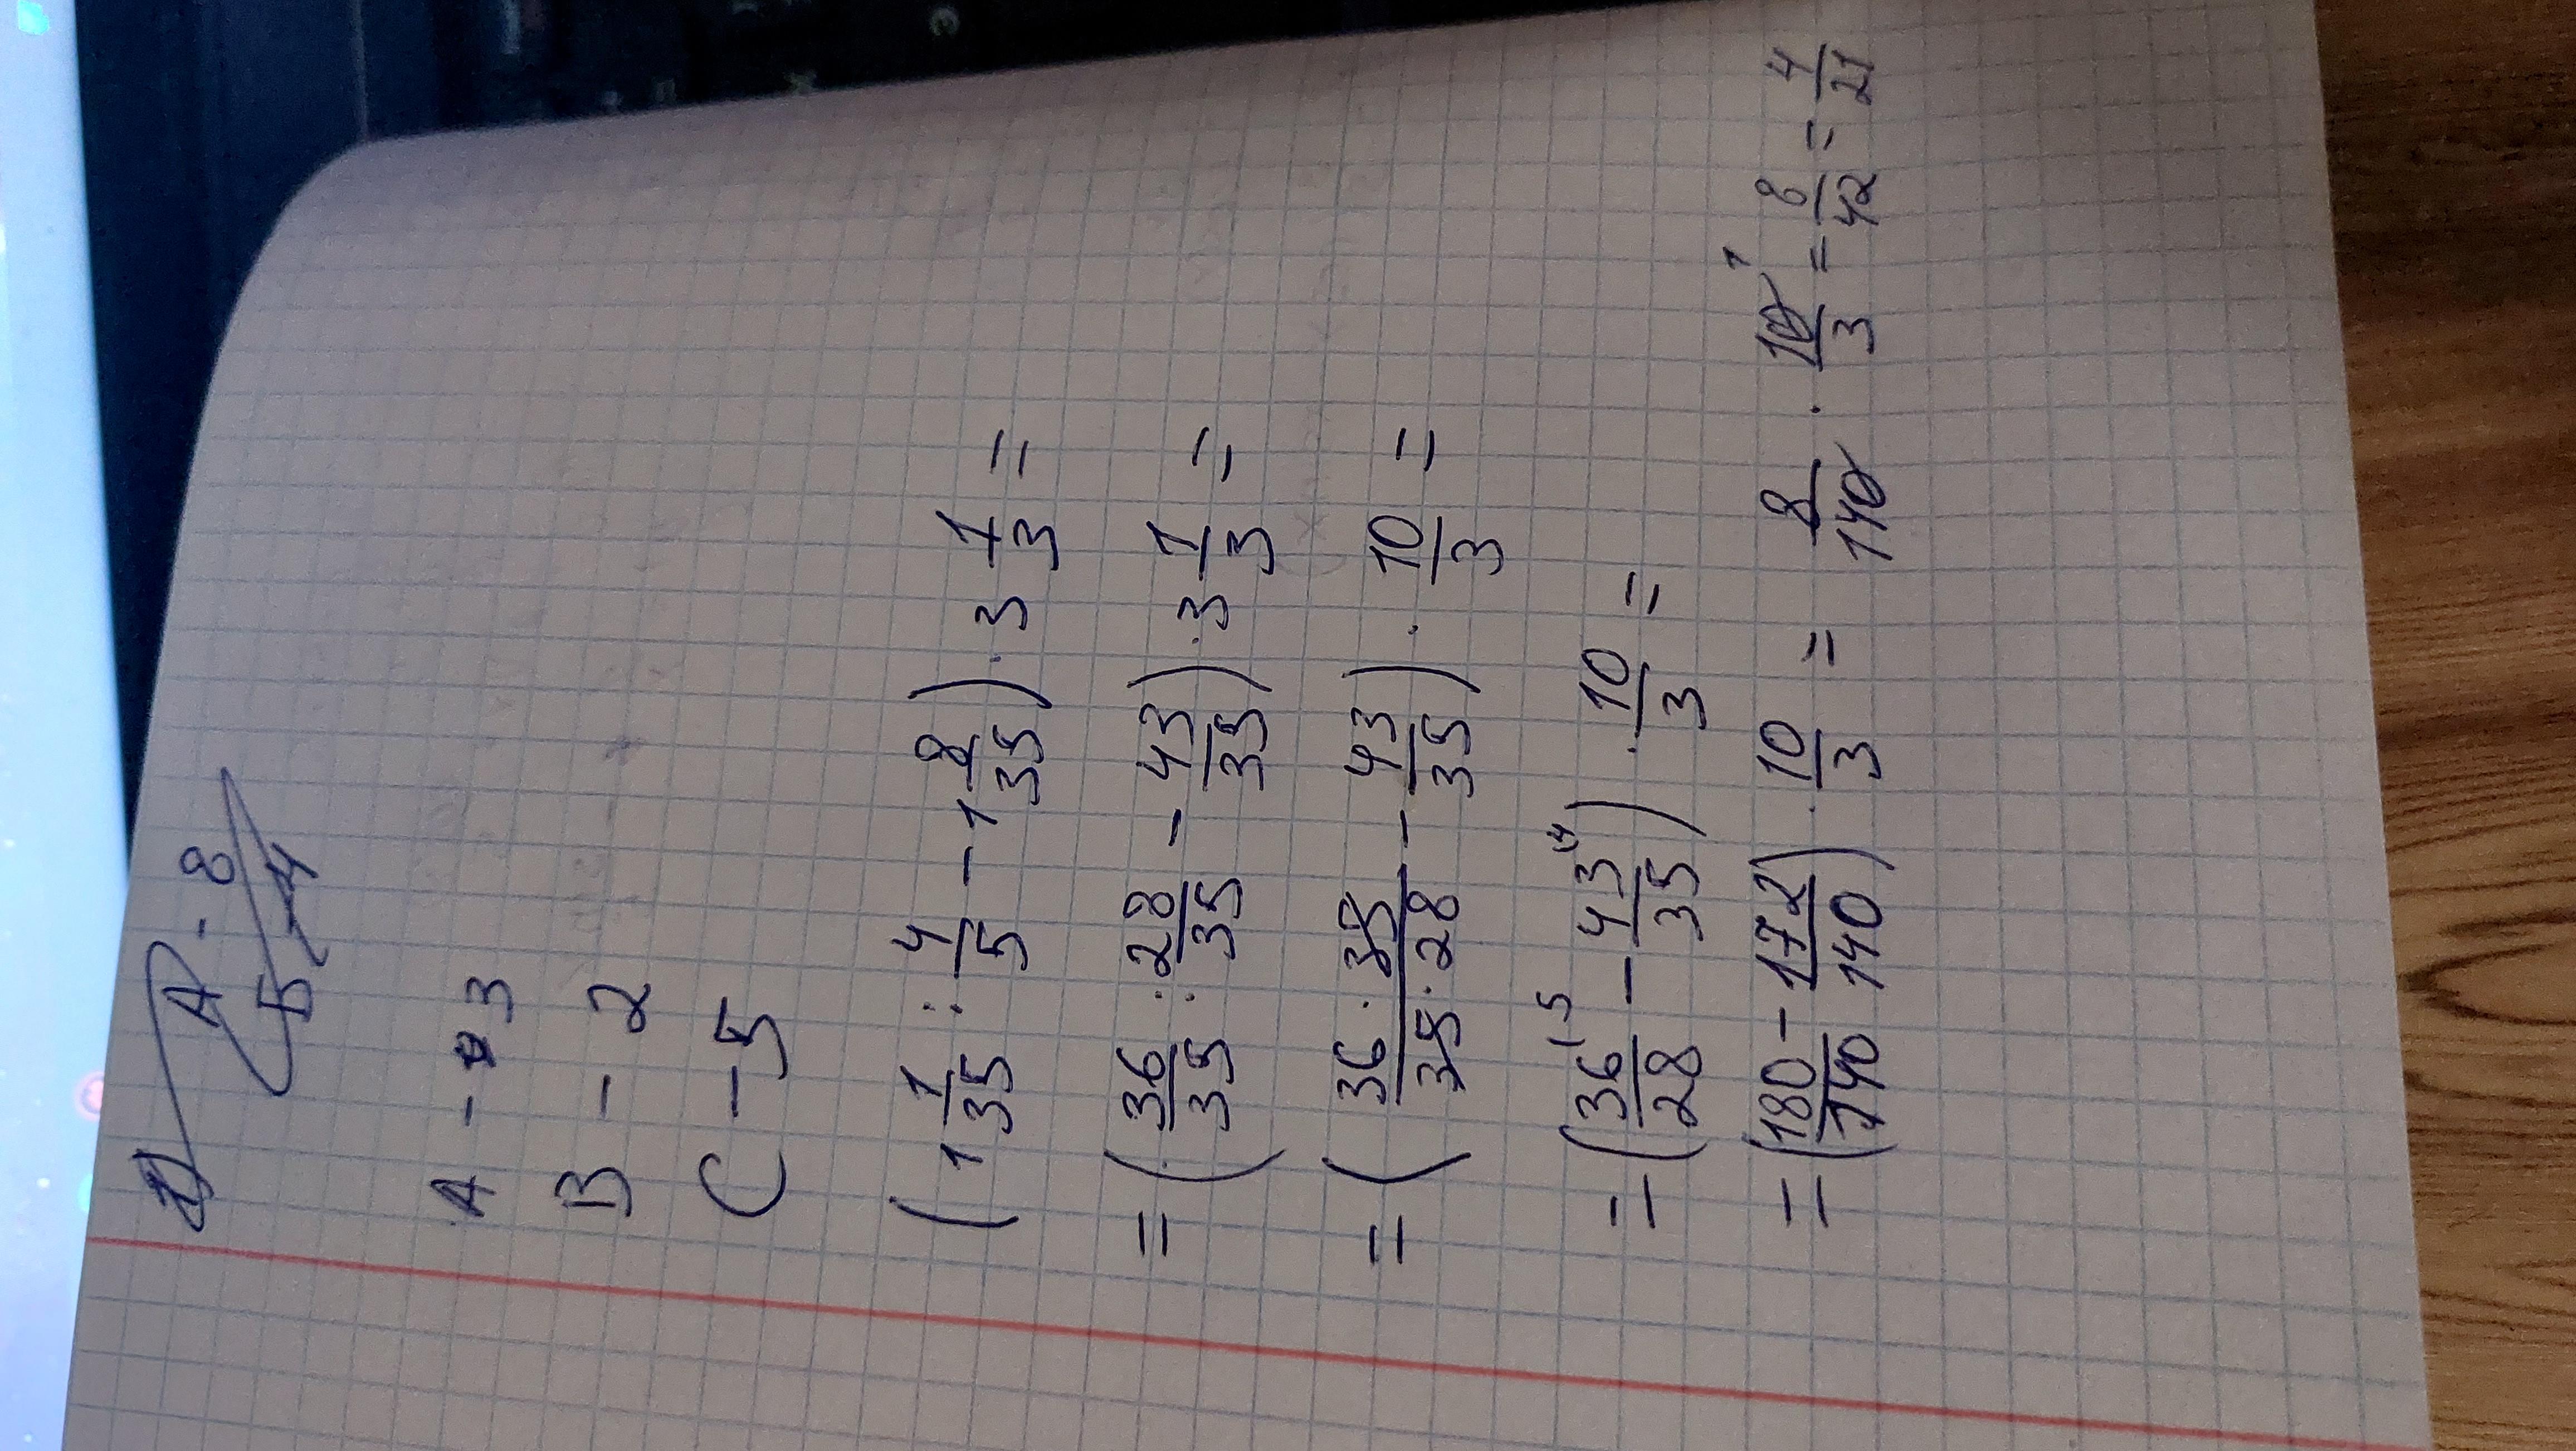 A - 8
Б - 4
A - 3
B - 2
C - 5
(1 1/35 : 4/5 - 1 8/35) · 3 1/3 =
= (36/35 : 28/35 - 43/35) · 3 1/3 =
= (36 · 35/35 · 28 - 43/35) · 10/3 =
= (36/28 (5 - 43/35 (4) · 10/3 =
= (180/140 - 172/140) · 10/3 = 8/140 · 10/3 1 = 8/42 = 4/21